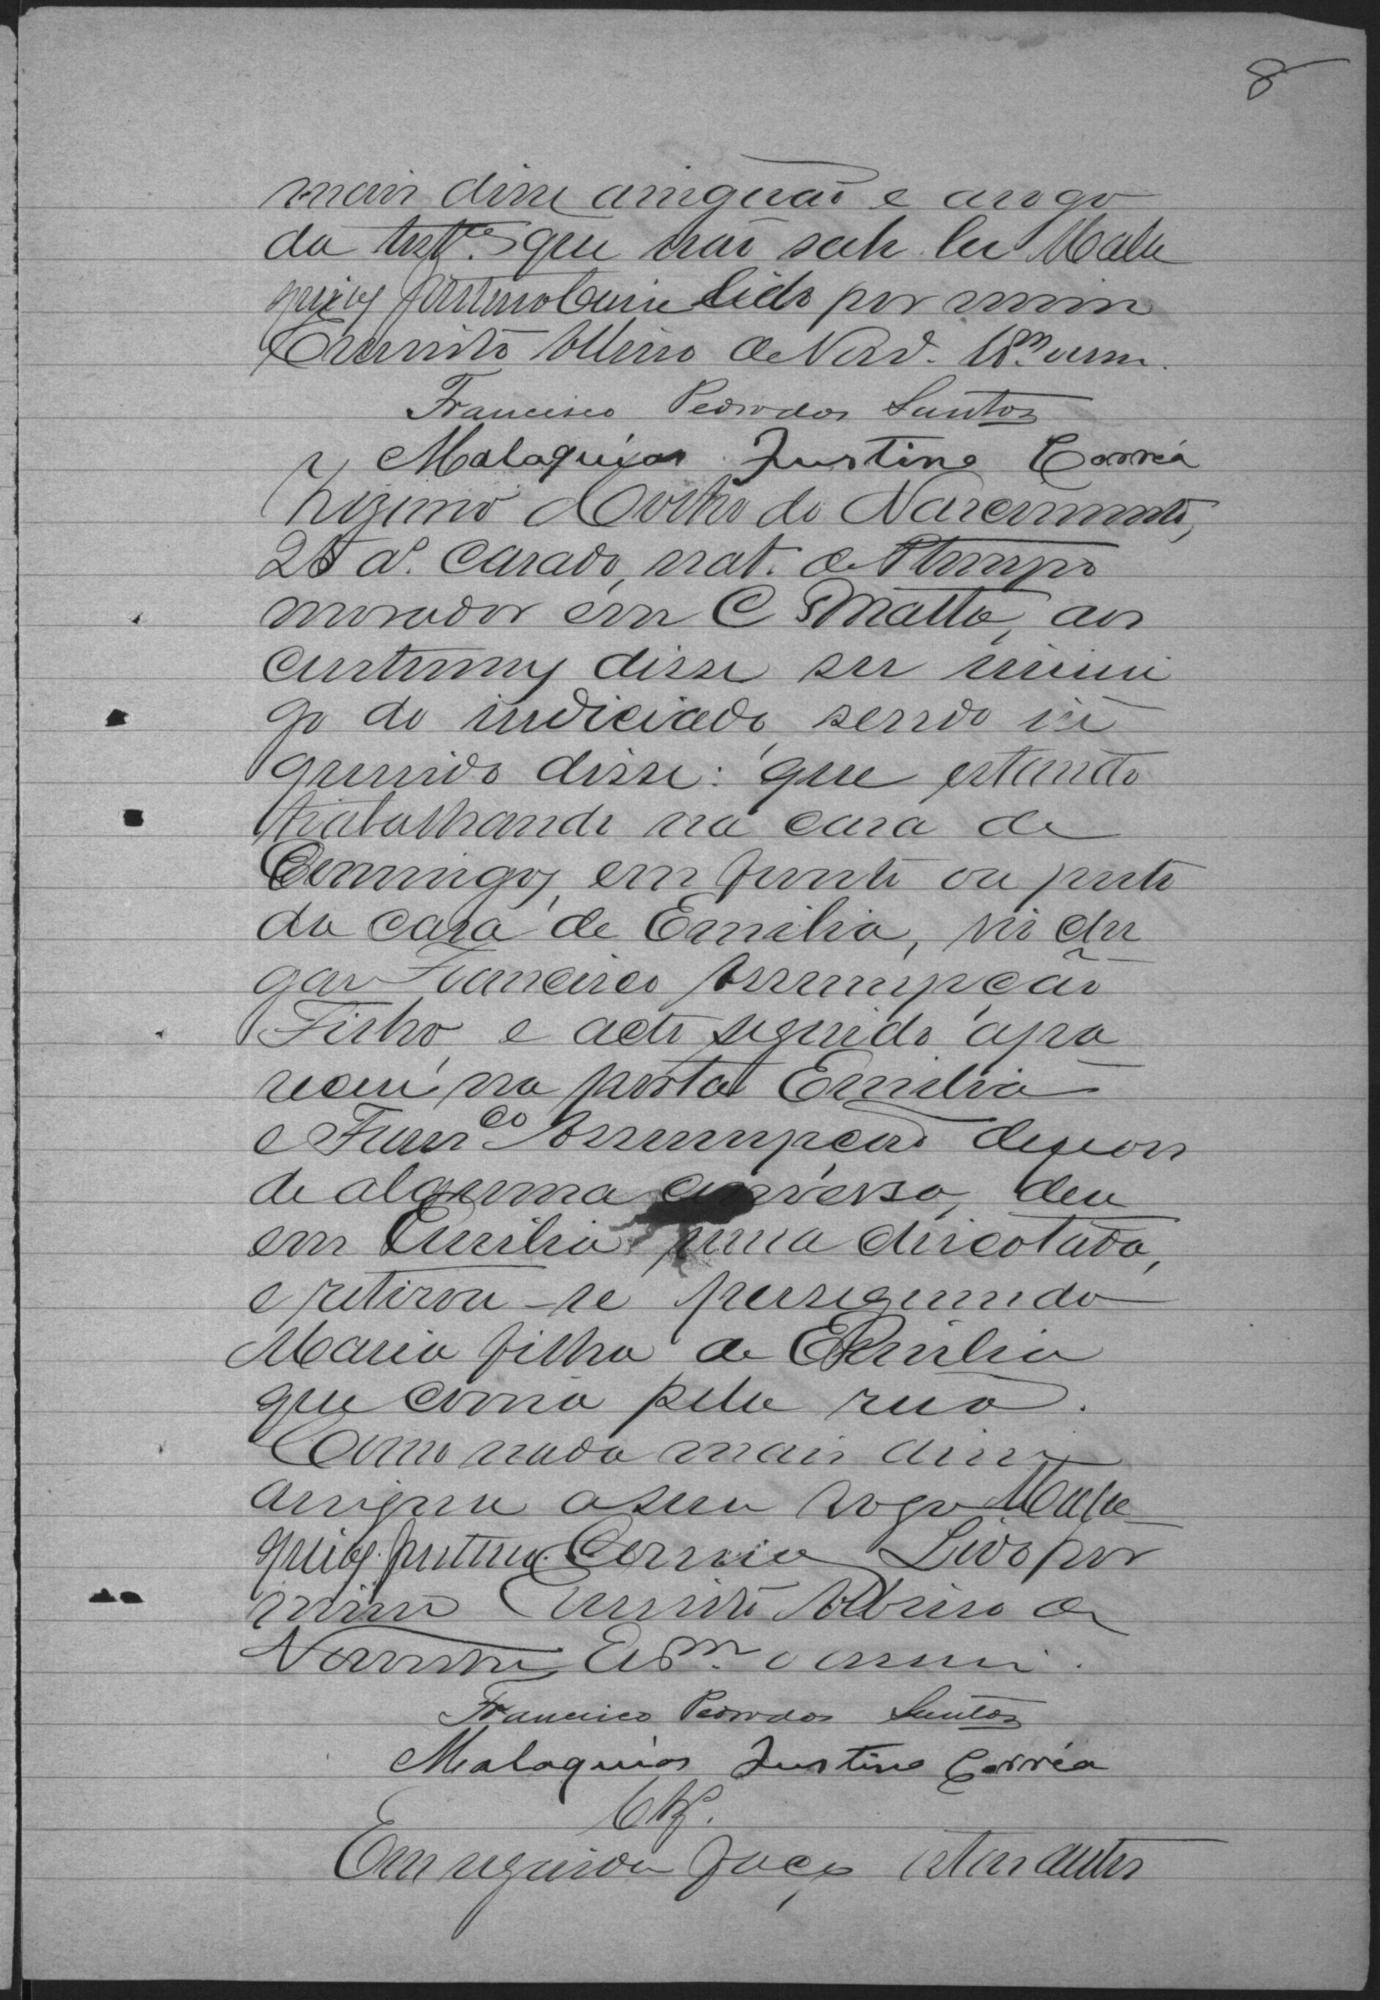 8
mais disse assignão e a rogo
da testª que não sabe ler Mala
quias Justino Corrêa lido por mim
Ernesto Albino de Nasc. Esm o escrevi.
Francisco Pedro dos Santos
Malaquias Justino Corrêa
do Nascimento,
25 aº. casado, nat. de
morador em C Matto, aos
custumes disse ser inimi
go do indiciado, sendo in
querido disse: que estando
trabalhando na casa de
Domingos, em frente ou perto
da casa de Emilia, vio che
gar Francisco Assumpção
Filho, e acto seguido apa
receu na porta Emilia
e Francº Assumpção depois
de alguma conversa, deu
em Emilia uma chicotada,
e retirou-se perseguindo
Maria filha de Emilia
que corria pela rua.
Como nada mais disse
assigna a seu rogo Mala
quias Justino Correia Lido por
mim Albino de
Esm o escrevi.
Francisco Pedro dos Santos
Malaquias Justino Corrêa
Em seguida faço estes autos